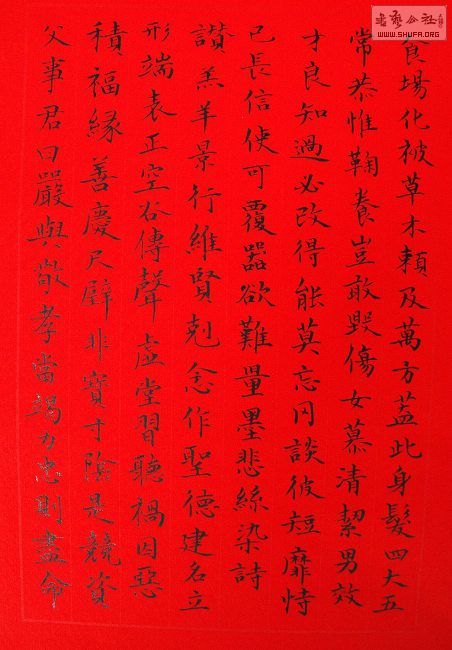 书艺公社
WWW.SHUFA.ORG
食場化被草木賴及萬方蓋此身髮四大五
常恭惟鞠養豈敢毀傷女慕清絜男效
才良知過必改得能莫忘罔談彼短靡恃
己長信使可覆器欲難量墨悲絲染詩
讃羔羊景行維賢剋念作聖德建名立
形端表正空谷傳聲虛堂習聽禍因惡
積福緣善慶尺璧非寶寸陰是競資
父事君曰嚴與敬孝當竭力忠則盡命